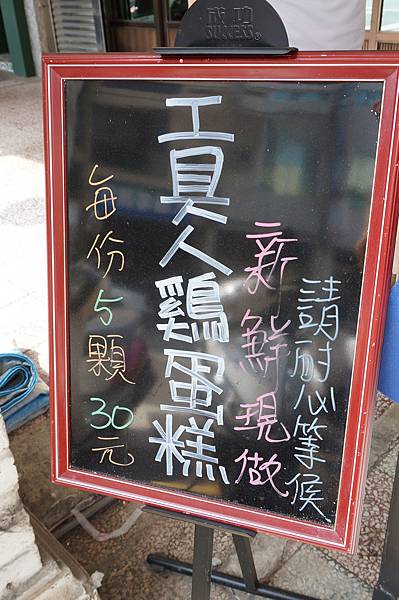 成功
SUCCESS®
請耐心等候
新鮮現做
工具人鷄蛋糕
每份5顆30元